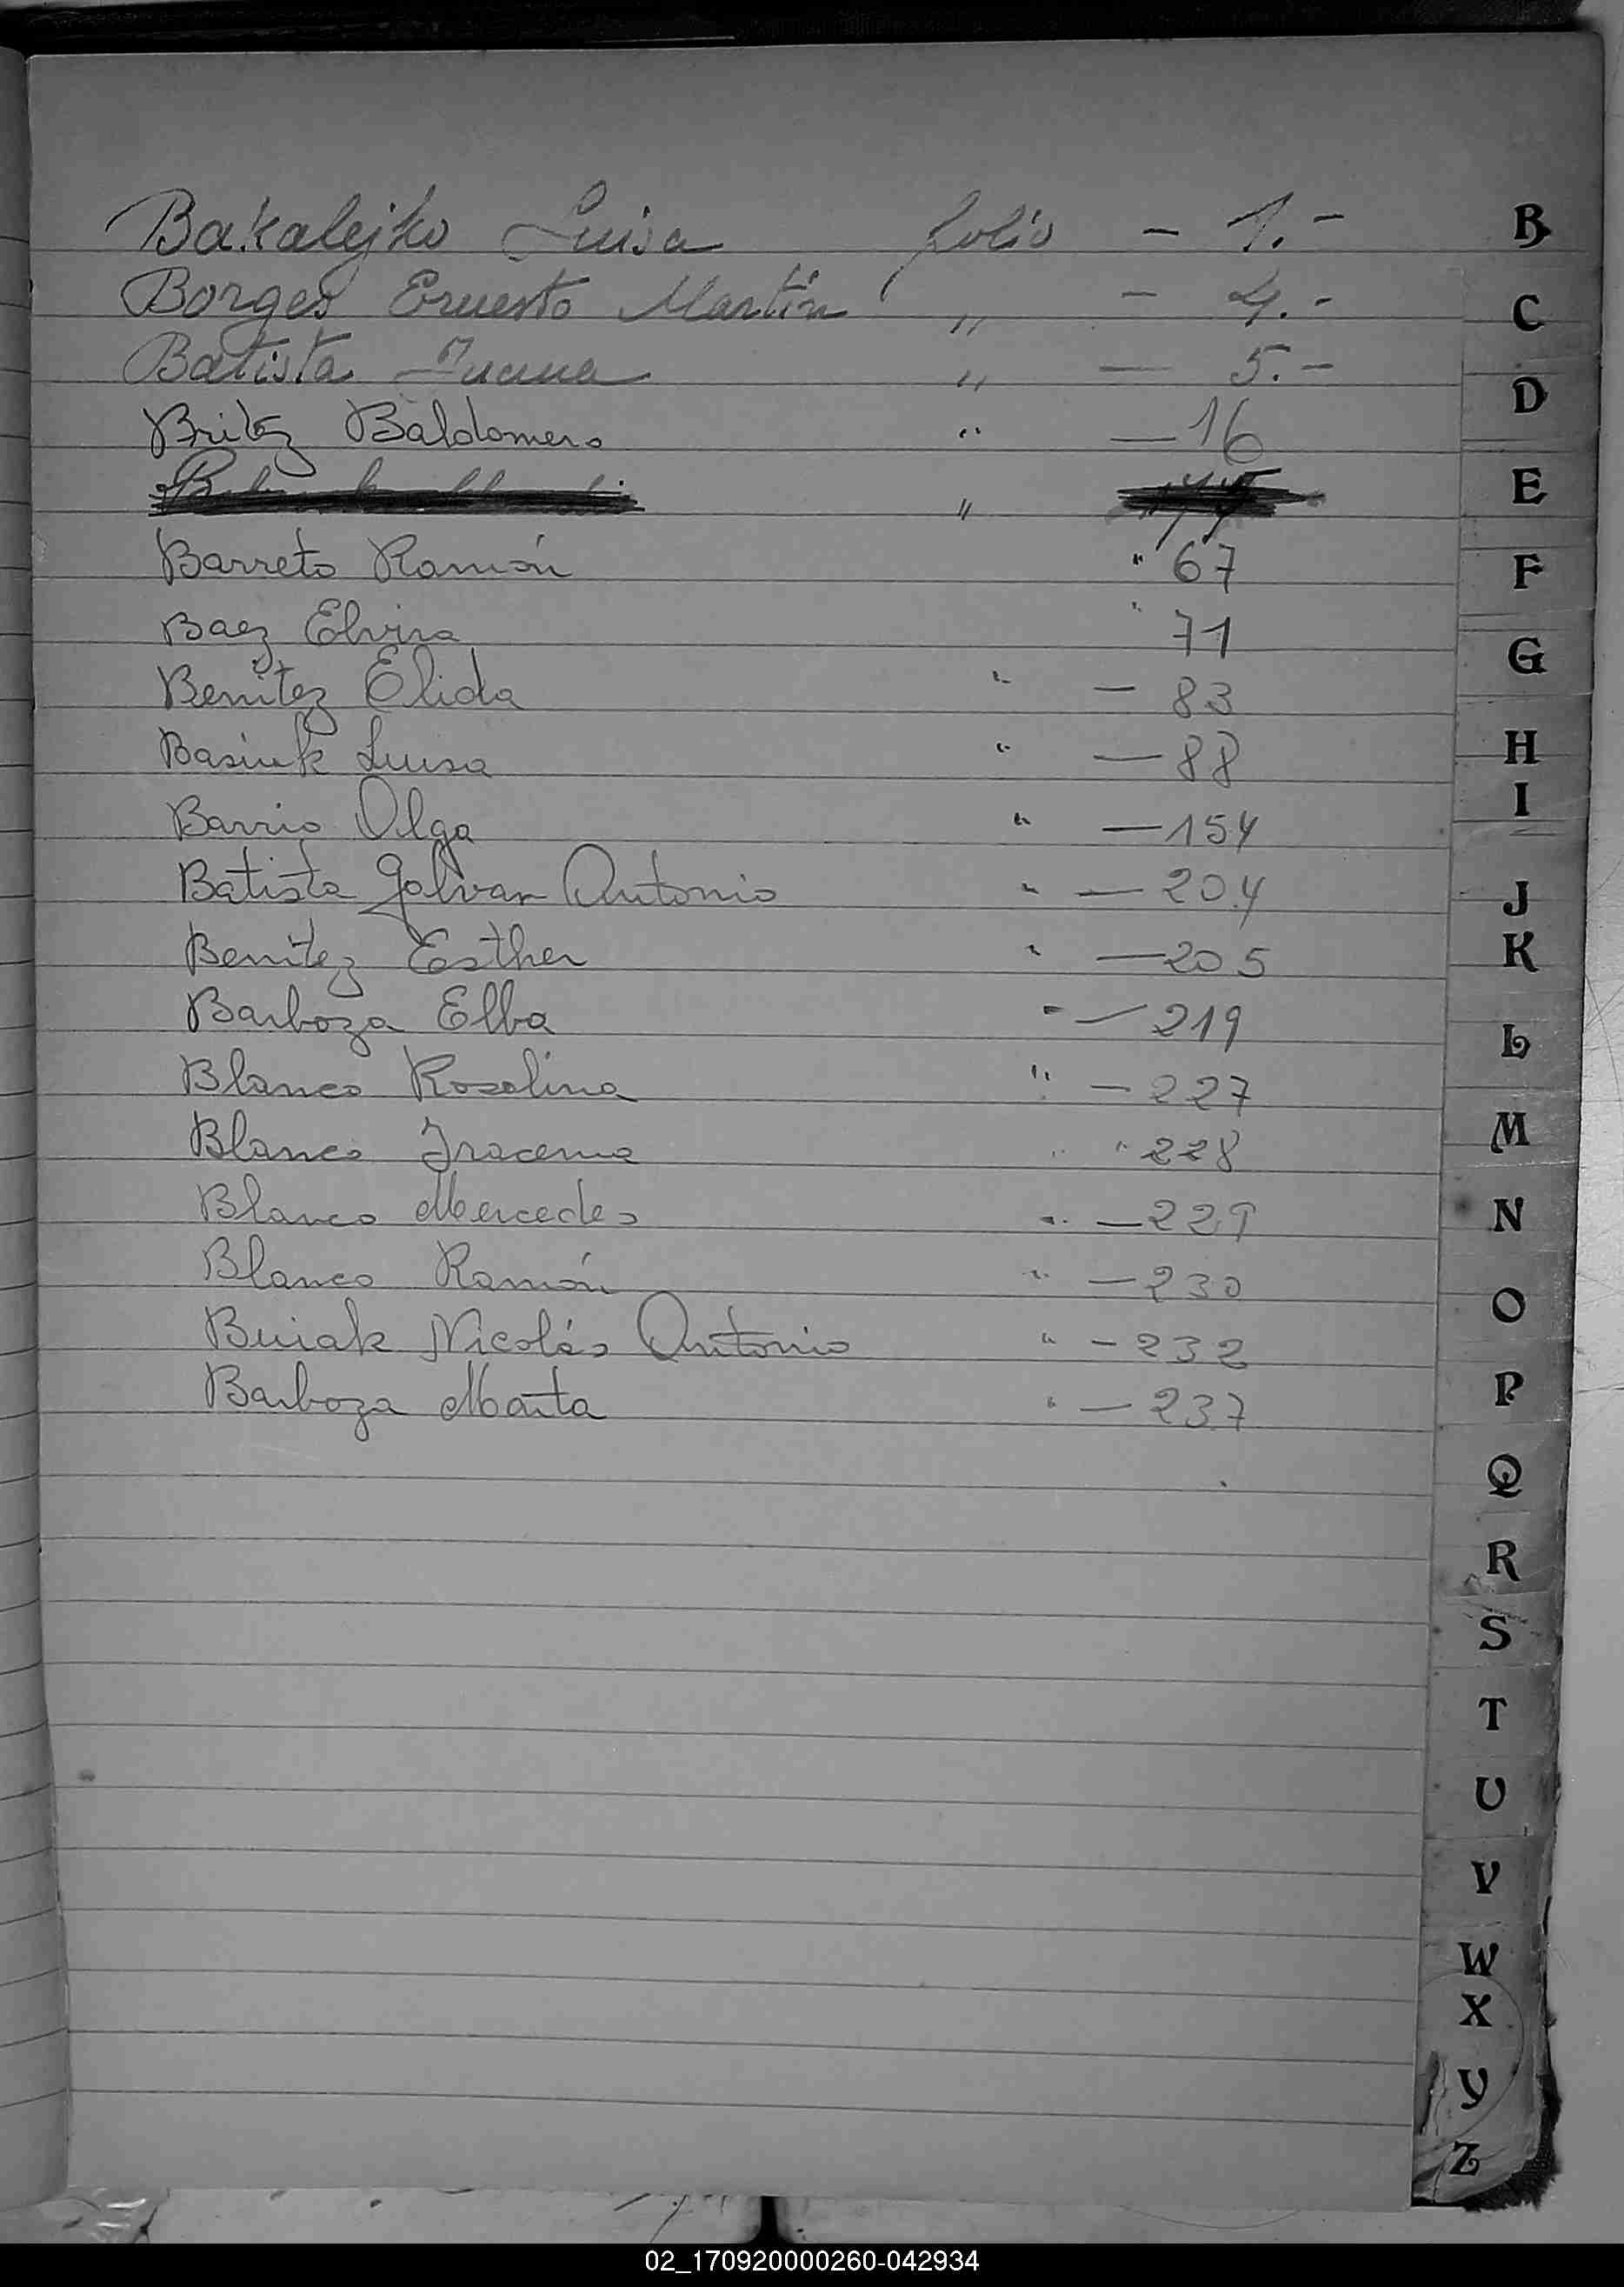 Bakalejko Luisa folio - 1.- B
Borges Ernesto Martín " - 4.- C
Batista Juana " - 5.- D
Britez Baldomero " - 16
" E
Barreto Ramón " 67 F
Baez Elvira " 71 G
Benítez Elida " - 83
Basiuk Luisa " - 88 H
Barrio Olga " - 154 I
Batista Galvan Antonio " - 204 J
Benitez Esther " - 205 K
Barboza Elba " - 219 L
Blanco Rosalina " - 227
Blanco Iracema " " 228 M
Blanco Mercedes " - 229 N
Blanco Ramón " - 230 O
Buiak Nicolás Antonio " - 232
Barboza Marta " - 237 P
Q
R
S
T
U
V
W
X
Y
Z
02_170920000260-042934